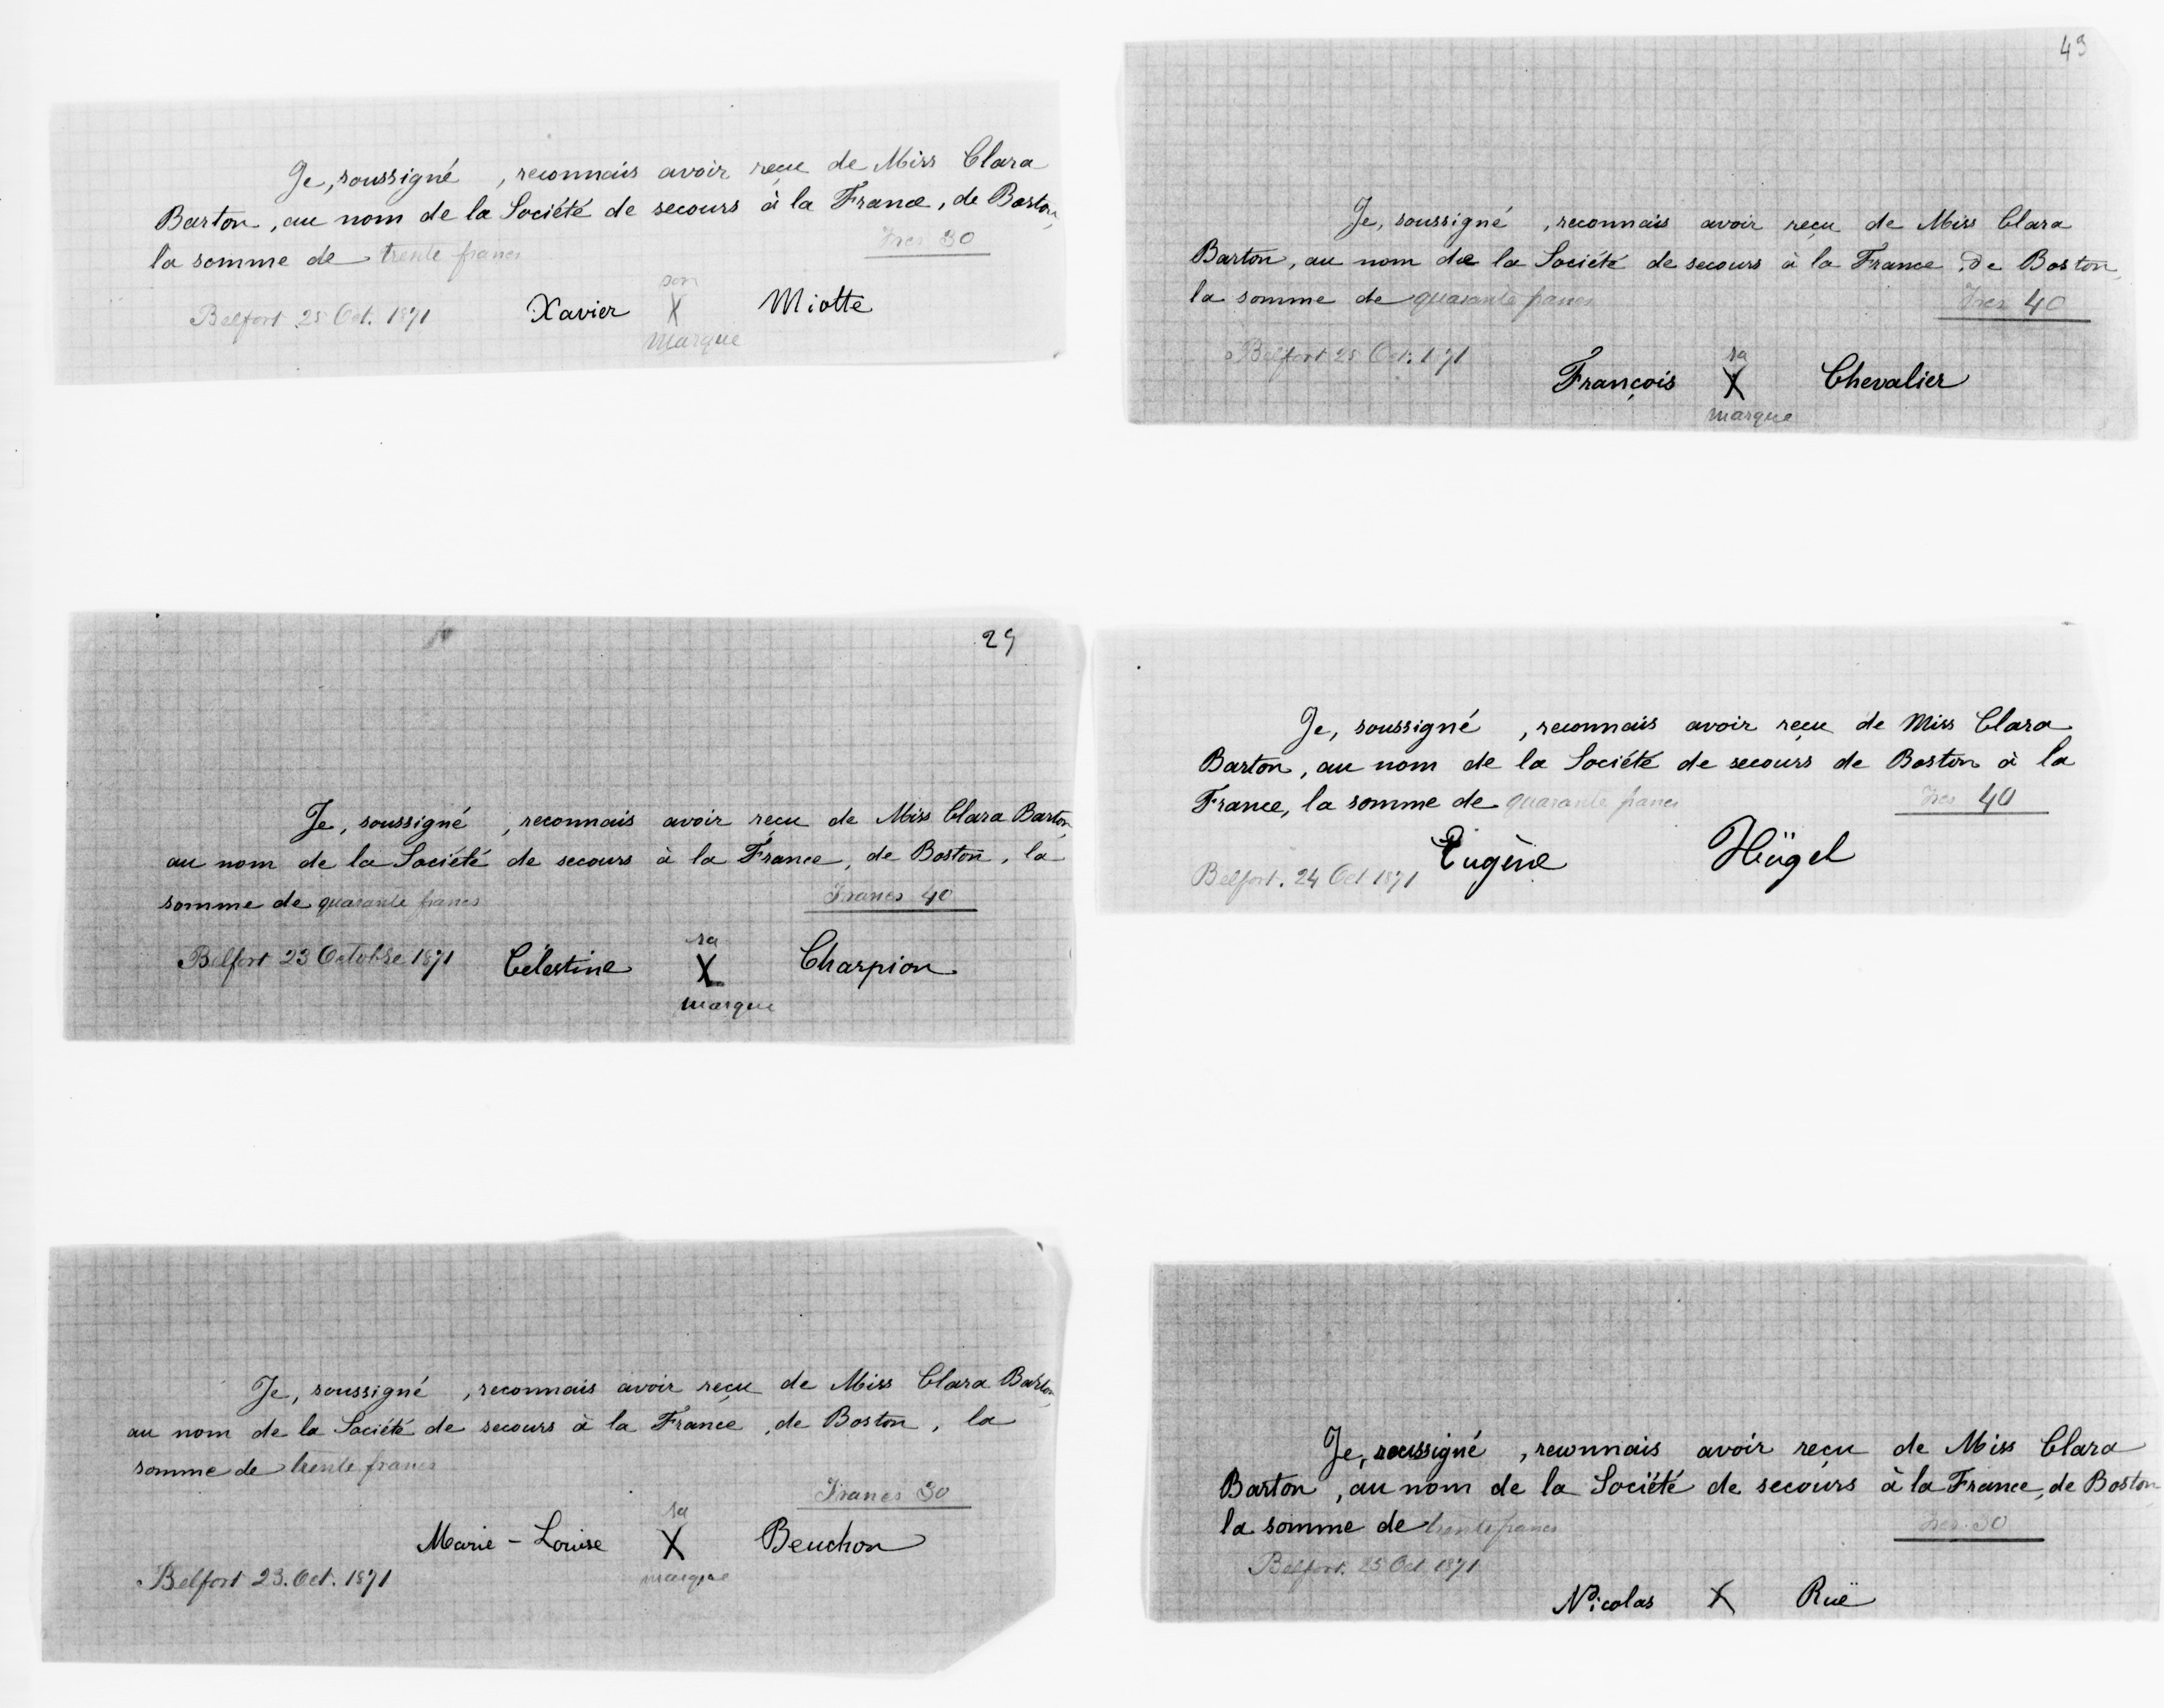 Je, soussigné , reconnais avoir reçu de Miss Clara
Barton, au nom de la Société de secours à la France, de Boston,
la somme de trente francs Frcs 30
Belfort 25 Oct. 1871 Xavier son X marque Miotte
49
Je, soussigné , reconnais avoir reçu de Miss Clara
Barton, au nom de la Société de secours à la France, de Boston,
la somme de quarante francs Frcs 40
Belfort 25 Oct. 1871
François sa X marque Chevalier
29
Je, soussigné , reconnais avoir reçu de Miss Clara Barton,
au nom de la Société de secours à la France, de Boston, la
somme de quarante francs Francs 40
Belfort 23 Octobre 1871 Célestine sa X marque Charpion
Je, soussigné , reconnais avoir reçu de Miss Clara
Barton, au nom de la Société de secours de Boston à la
France, la somme de quarante francs Frcs 40
Belfort. 24 Oct 1871 Eugène Hügel
Je, soussigné , reconnais avoir reçu de Miss Clara Barton,
au nom de la Société de secours à la France, de Boston, la
somme de trente francs
Francs 30
Marie-Louise sa X marque Beuchon
Belfort 23. Oct. 1871
Je, soussigné , reconnais avoir reçu de Miss Clara
Barton, au nom de la Société de secours à la France, de Boston
la somme de trente francs Frcs. 30
Belfort. 25 Oct 1871
Nicolas X Rüe